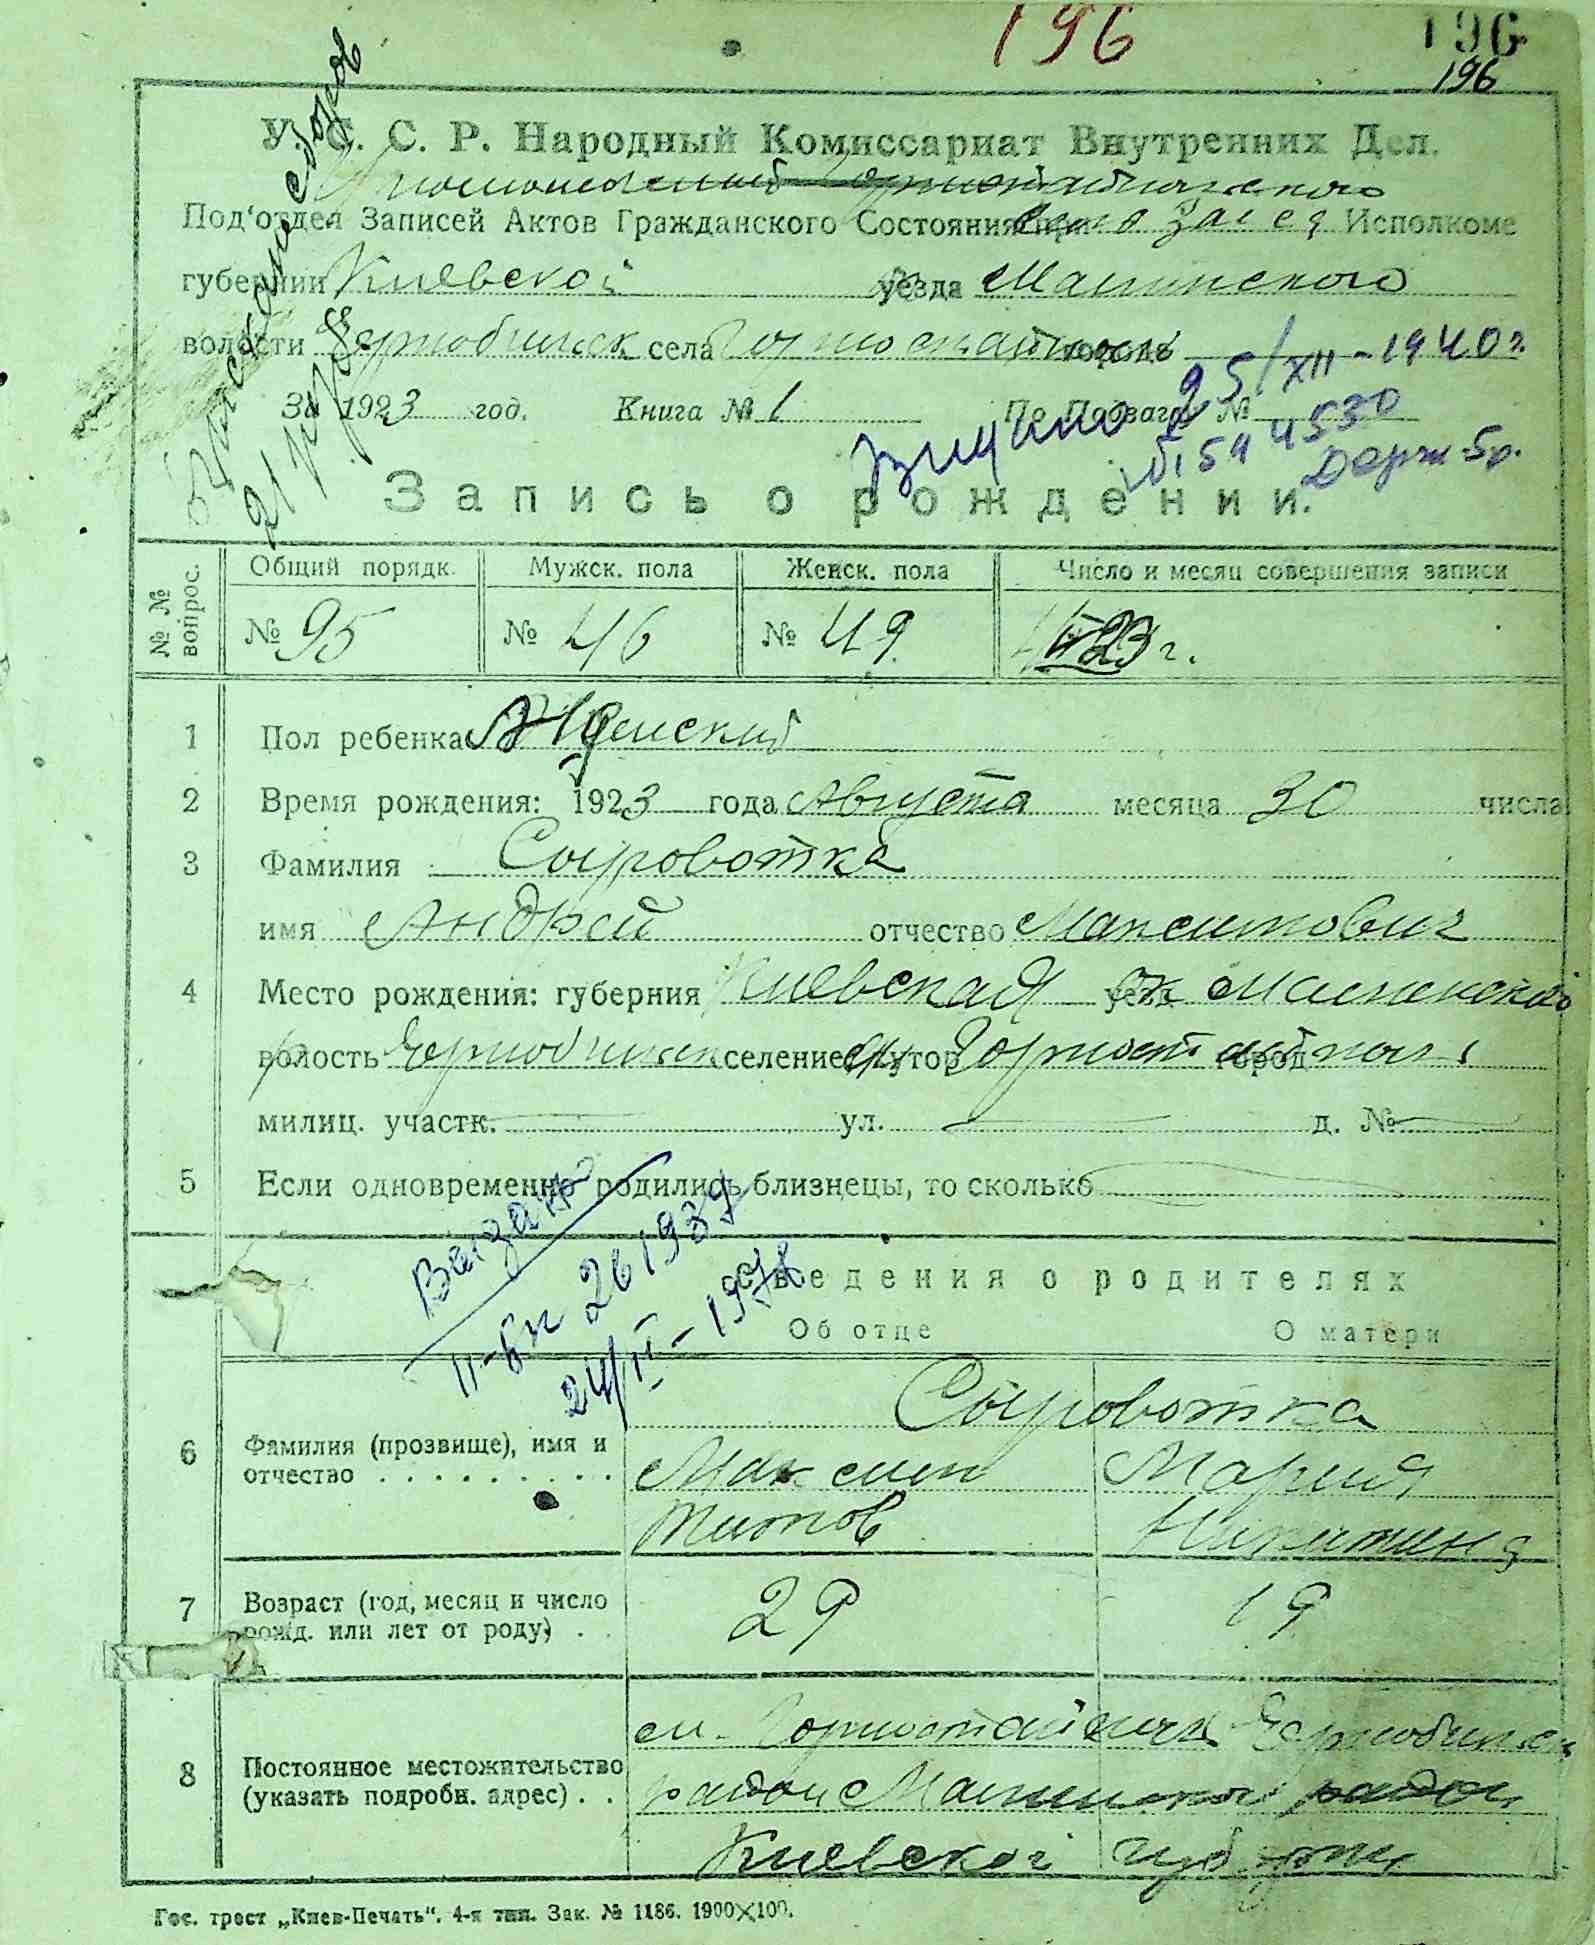 196
196
196
У. С. С. Р. Народный Комиссариат Внутренних Дел.
Под'отдел Записей Актов Гражданского Состояния при Исполкоме
губернии Киевской уезда Малинского
волости Чернобильск села город
За 1923 год. Книга № 1 По Повзагс №
25/XII-1940 г.
544530
Держ. 5р.
Запись о рождении.
№ № вопрос. Общий порядк. Мужск. пола Женск. пола Число и месяц совершения записи
№ 95 № 46 № 49 г.
1 Пол ребенка
2 Время рождения: 1923 года Августа месяца 30 числа
3 Фамилия Сыроватка
имя Андрей отчество Максимович
4 Место рождения: губерния Киевская уезд Малинский
волость Чернобильск селение хутор Горностайполь город
милиц. участк. ул. д. №
5 Если одновременно родились близнецы, то сколько
Выдано
II-БК 261937
24/II-1978
Сведения о родителях
Об отце О матери
Сыроватка
6 Фамилия (прозвище), имя и Максим Мария
отчество . . . . . . . . . Титов Никитина
7 Возраст (год, месяц и число 29 19
рожд. или лет от роду) . .
м. Чернобильск
8 Постоянное местожительство район
(указать подробн. адрес) . . Киевской губернии
Гос. трест „Киев-Печать“. 4-я тип. Зак. № 1186. 1900×100.